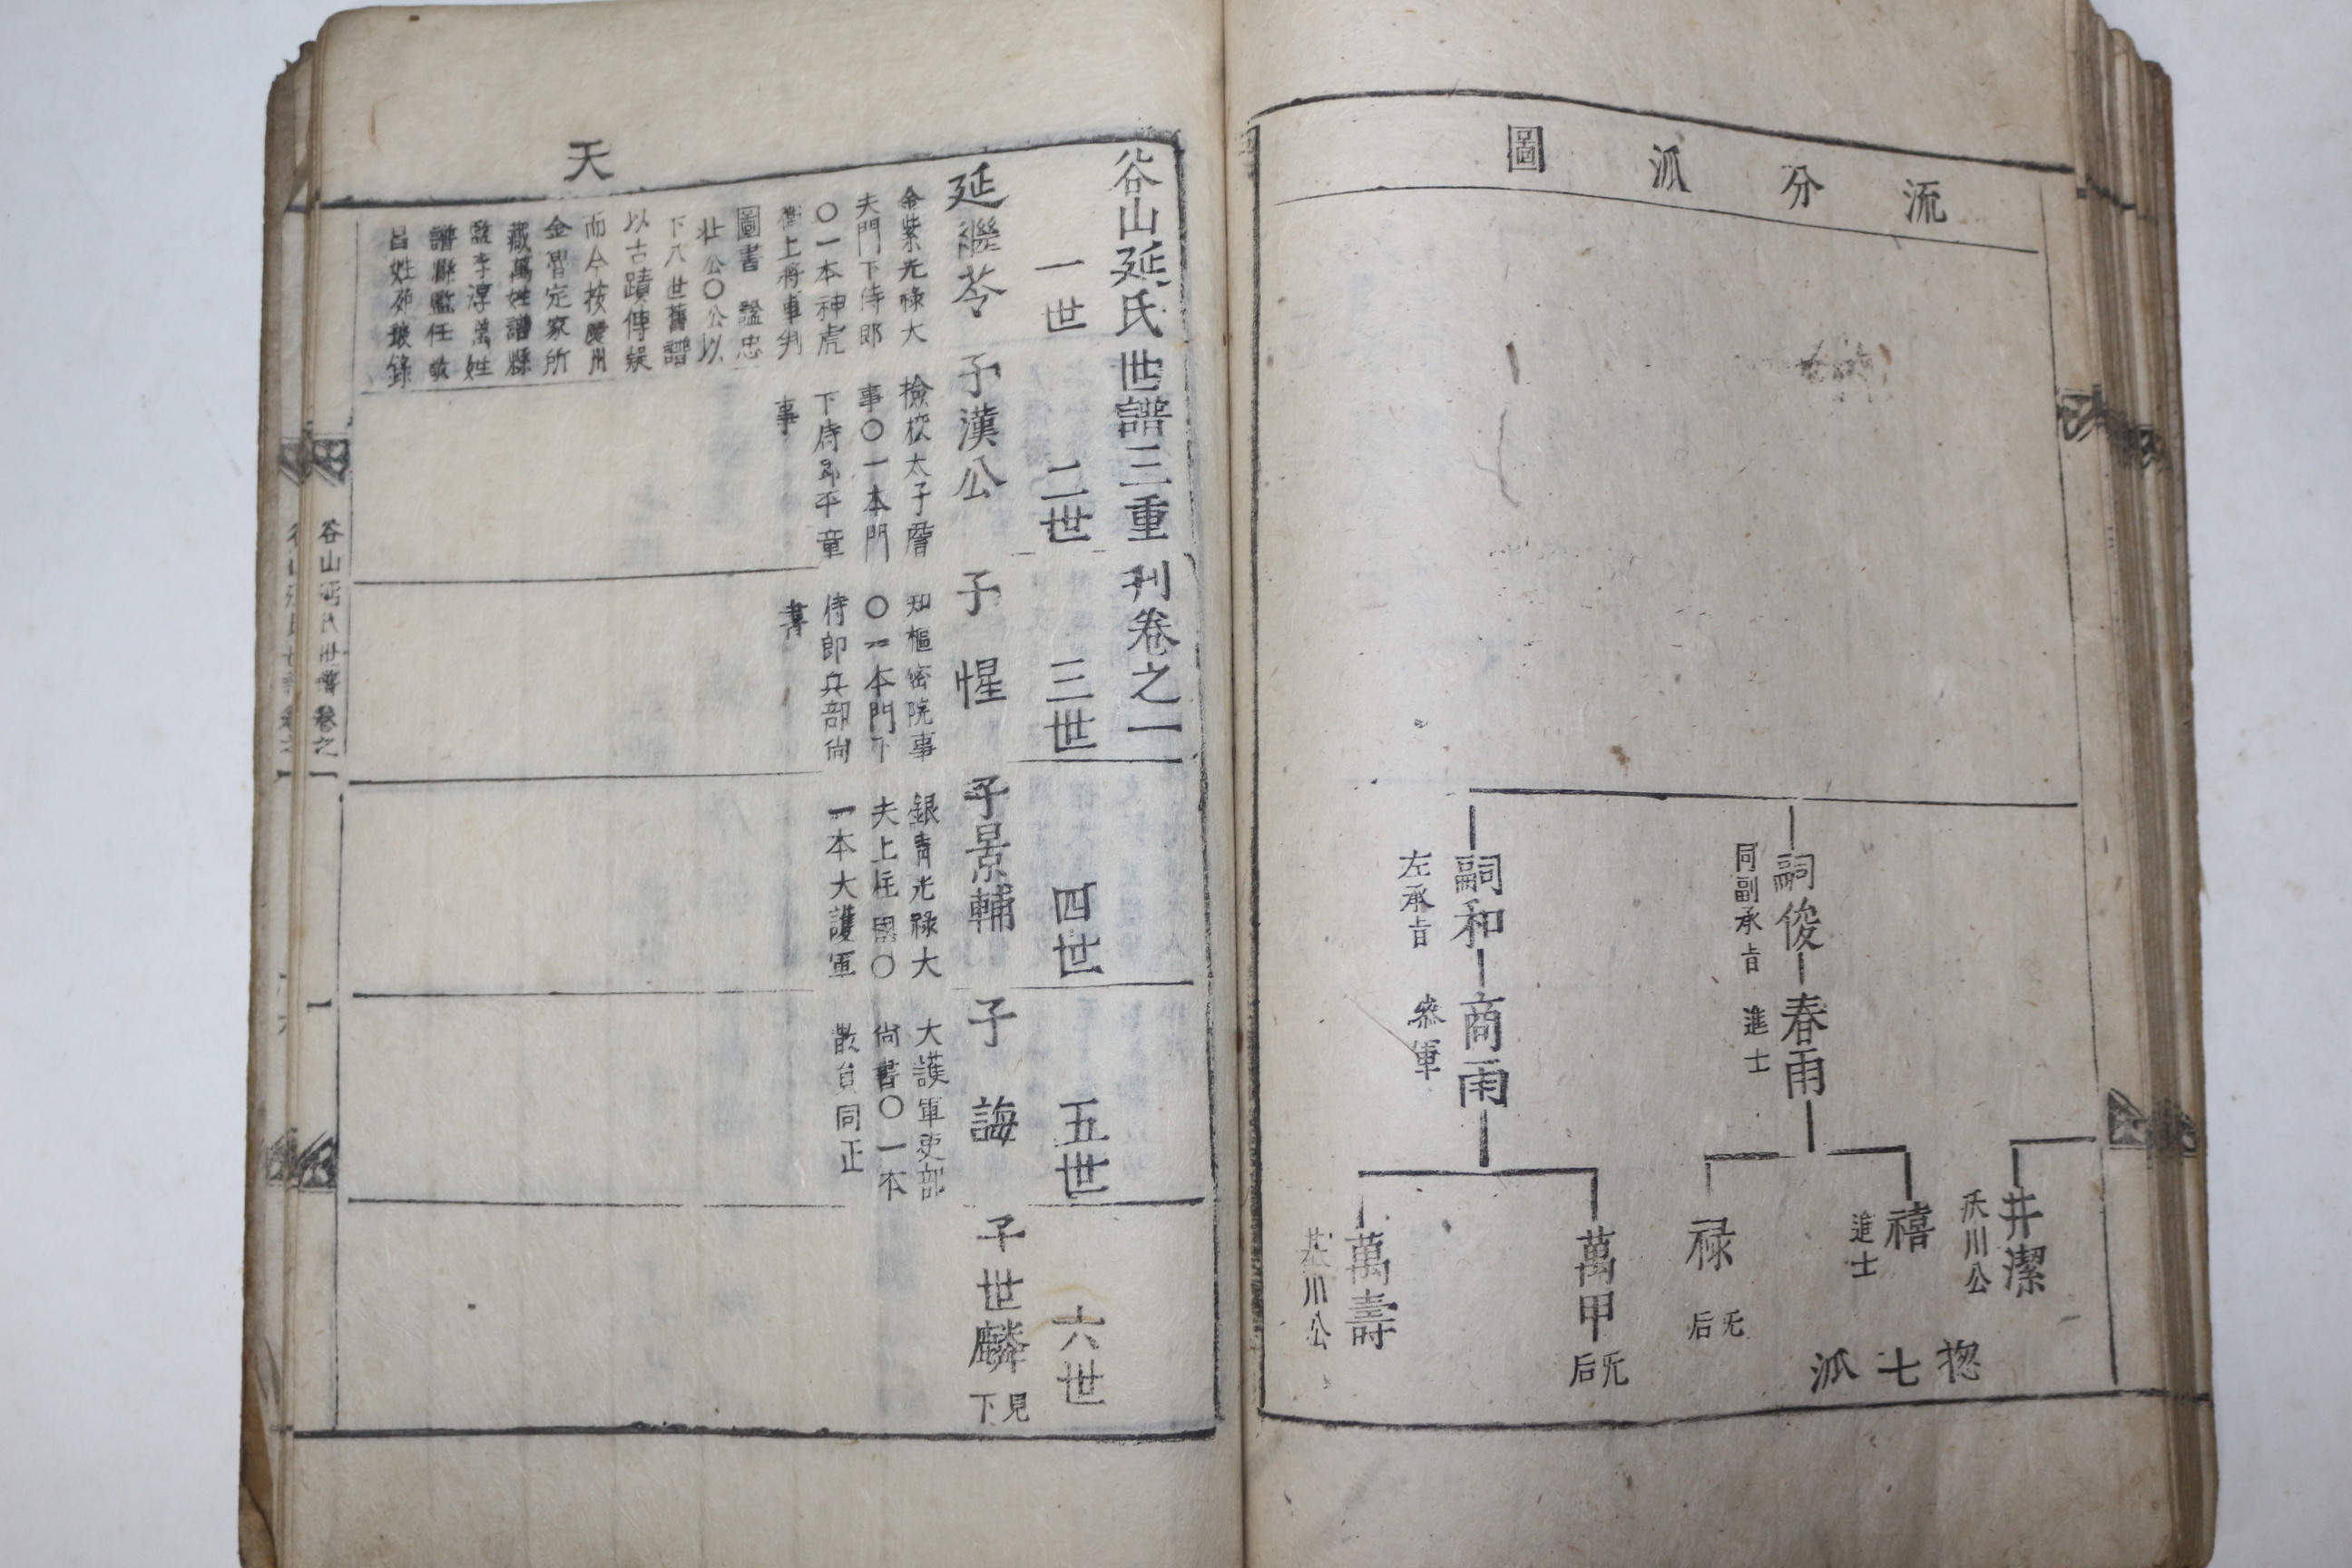 流分派圖
井潔
沃川公
禧
進士
嗣俊
同副承旨
春雨
進士
禄
无后
嗣和
左承旨
商雨
叅軍
萬甲
无后
萬壽
川公
揔七派
天
谷山延氏世譜三重刊卷之一
一世
二世
三世
四世
五世
六世
延繼苓
金紫光祿大
夫門下侍郎
〇一本神虎
衛上將軍判
圖書 謚忠
壯公〇公以
下八世舊譜
以古蹟傳
而今按慶州
金冑定家所
藏萬姓譜縣
監李淳萬姓
譜縣監任
昌姓苑錄
子漢公
檢校太子詹
事〇一本門
下侍郎平章
事
子惺
知樞密院事
〇一本門下
侍郎兵部尙
書
子景輔
銀青光祿大
夫上柱國〇
一本大護軍
子誨
大護軍吏部
尙書〇一本
散員同正
子世麟
見下
谷山延氏世譜 卷之一
一